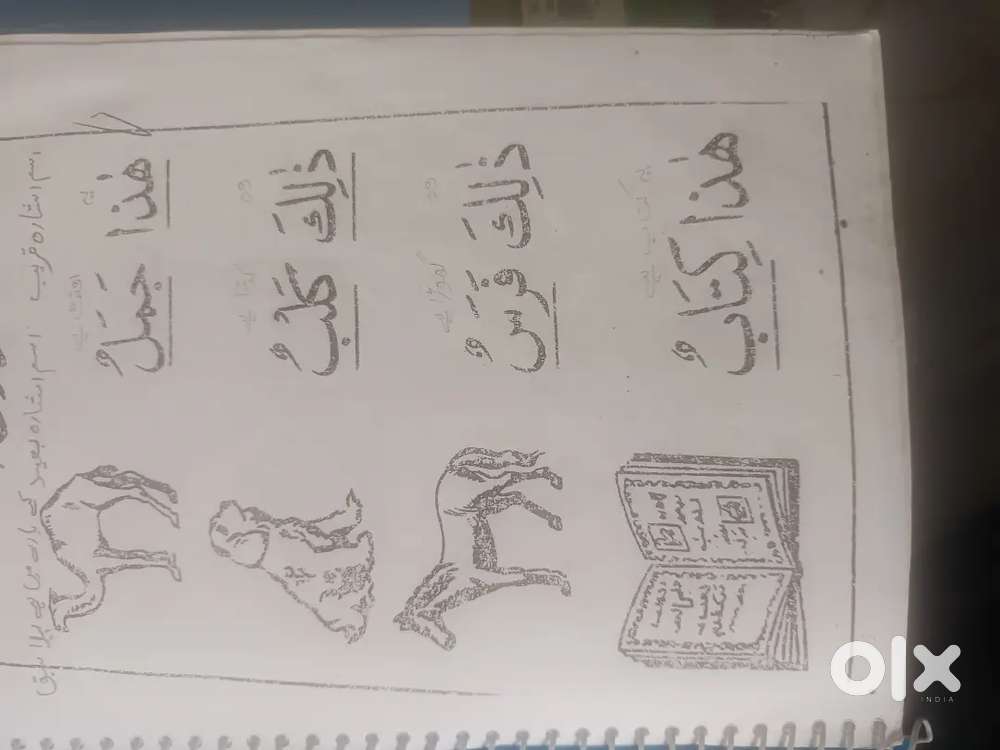 اسم اشارہ قریب اسم اشارہ بعید کے بارے میں ہے پہلا سبق
یہ اونٹ ہے
هٰذا جَمَلٌ
وہ کتا ہے
ذٰلِكَ كَلْبٌ
وہ گھوڑا ہے
ذٰلِكَ فَرَسٌ
یہ کتاب ہے
هٰذا كِتَابٌ
olx
INDIA